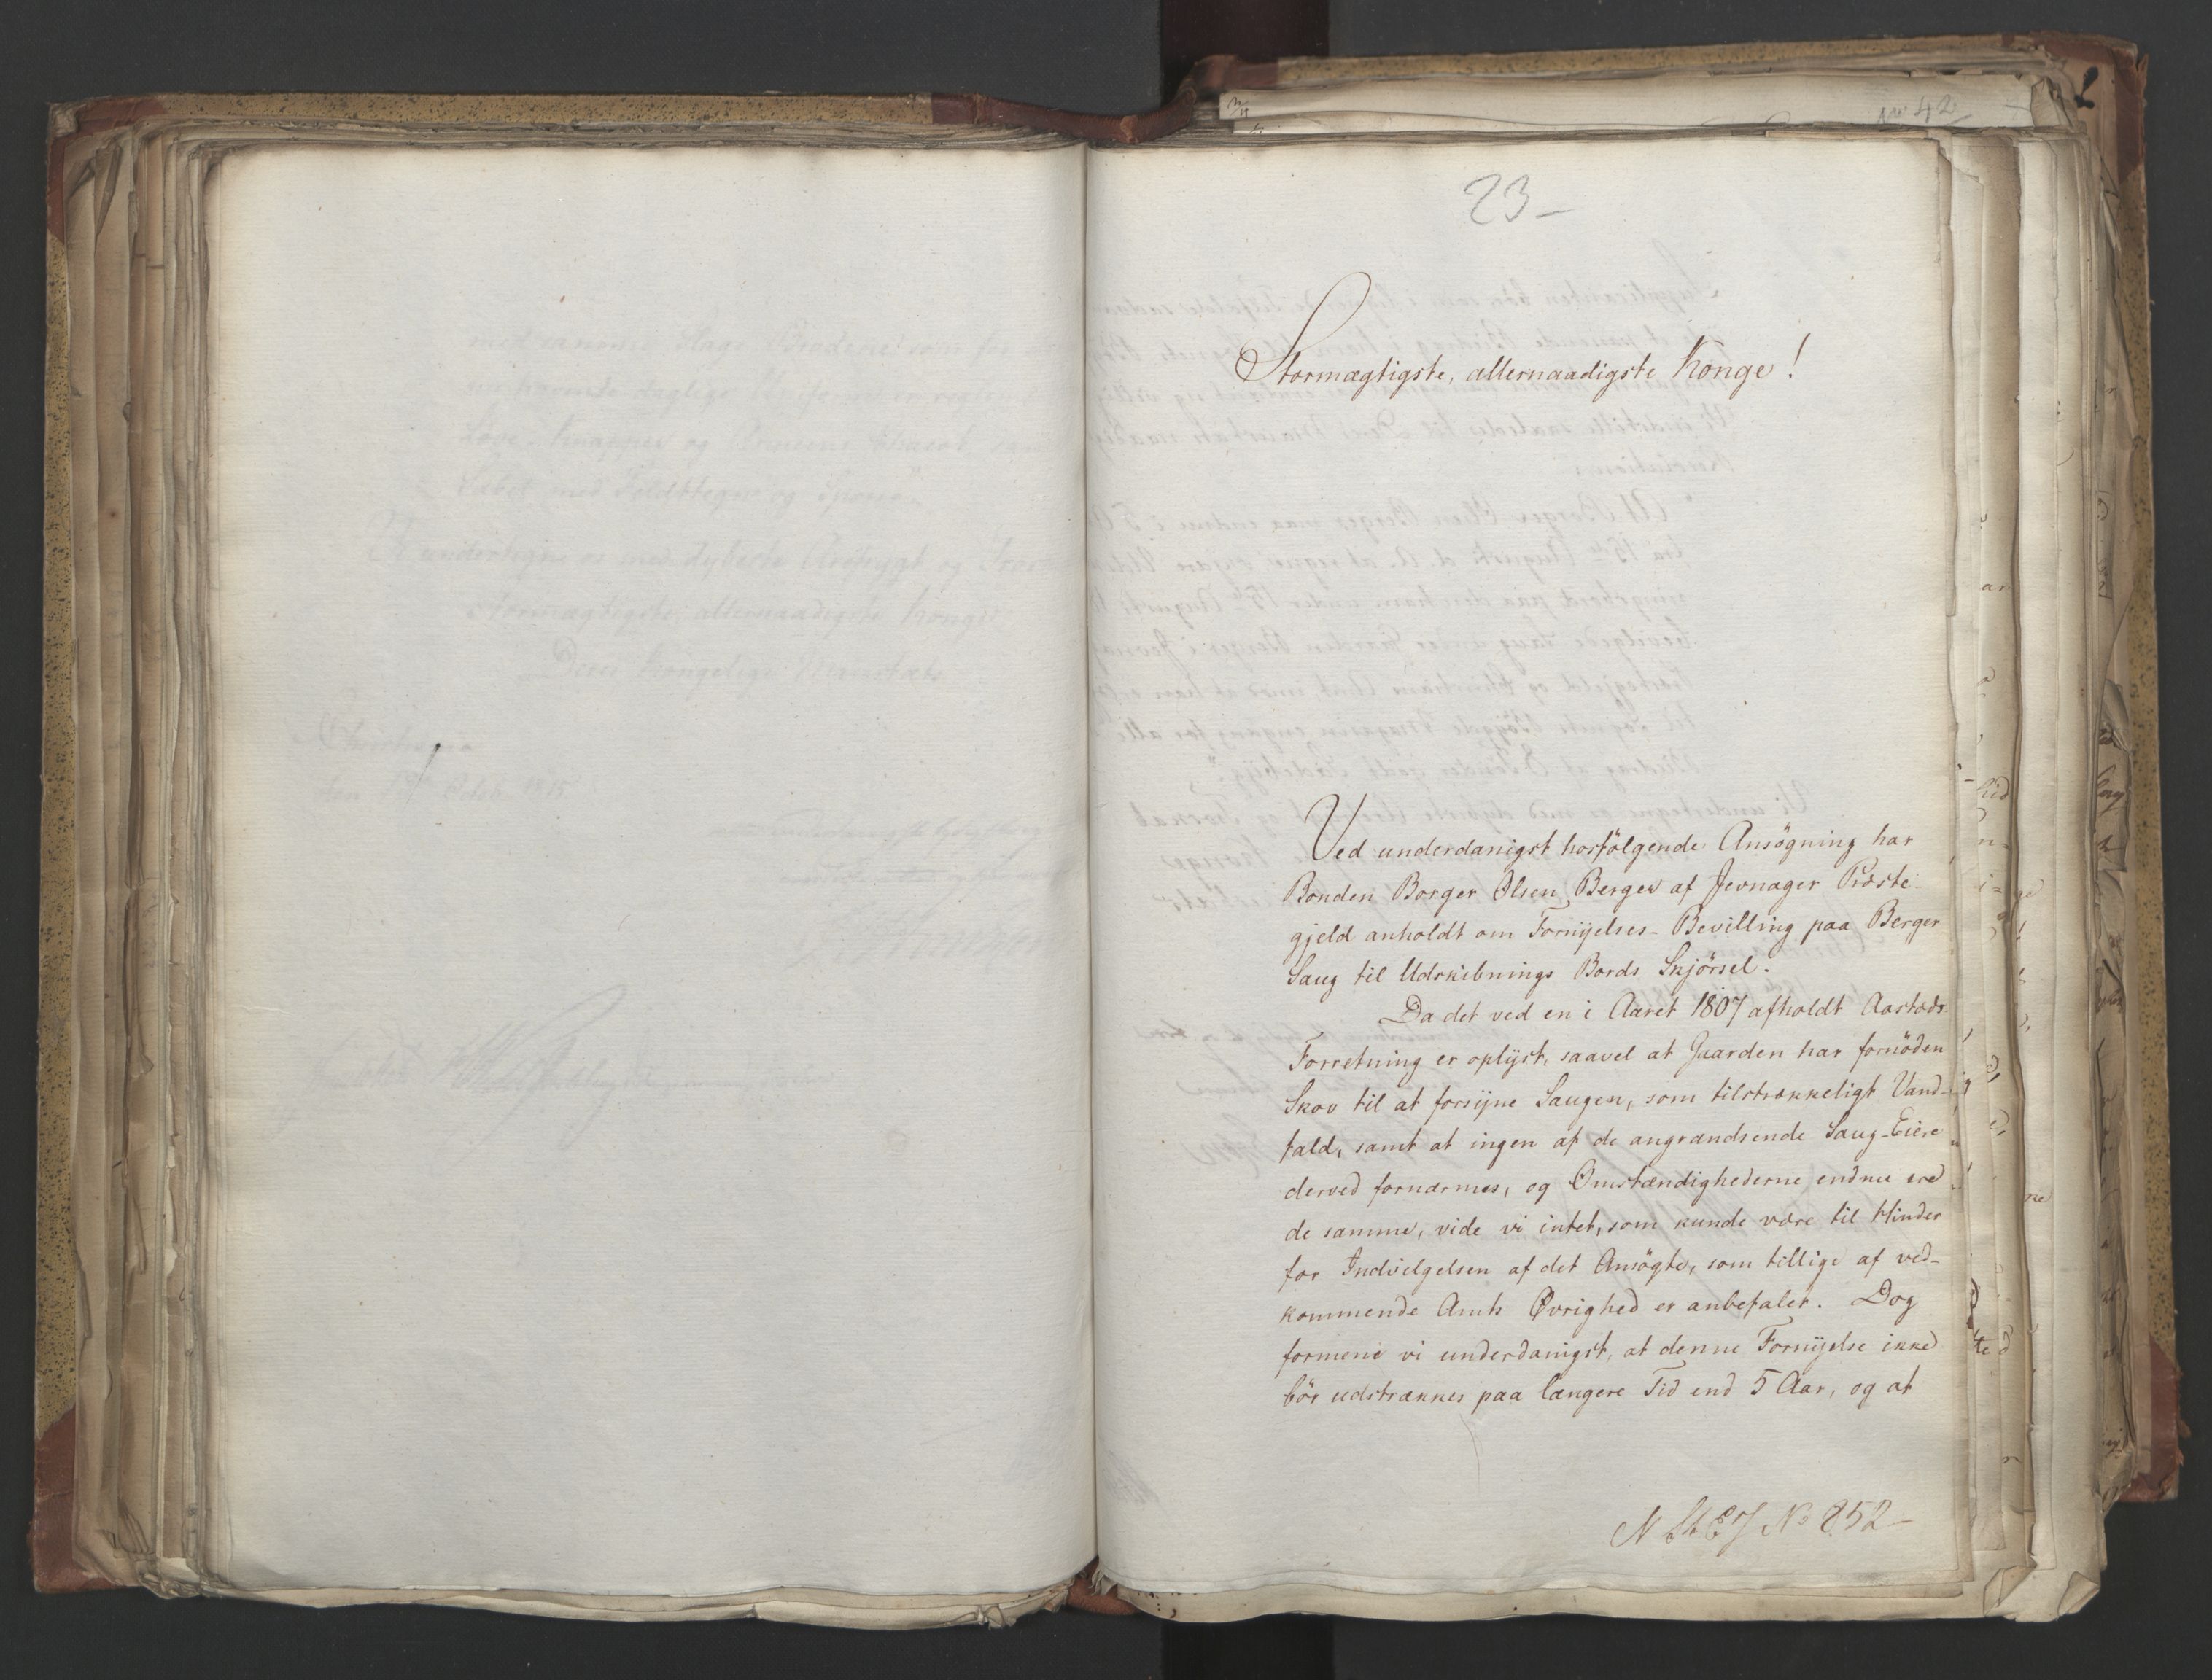 No 42
23–
Stormægtigste, allernaadigste Konge!
Ved underdanigst hosfölgende Ansögning har
Bonden Borger Olsen Berger af Jevnager Præste-
gjeld anholdt om Fornÿelses-Bevilling paa Berger
Saug til Udskibnings Bords Skjörsel.
Da det ved en i Aaret 1807 afholdt Aastæds-
Forretning er oplÿst, saavel at Gaarden har fornöden
Skov til at forsÿne Saugen, som tilstrækkeligt Vand-
fald, samt at ingen af de angrændsende Saug-Eiere
derved fornærmes, og Omstændighederne endnu ere
de samme, vide vi intet, som kunde være til Hinder
for Indvilgelsen af det Ansögte, som tillige af ved-
kommende Amts Øvrighed er anbefalet. Dog
formene vi underdanigst, at denne Fornÿelse ikke
bör udstrækkes paa længere Tid end 5 Aar, og at
No 852–